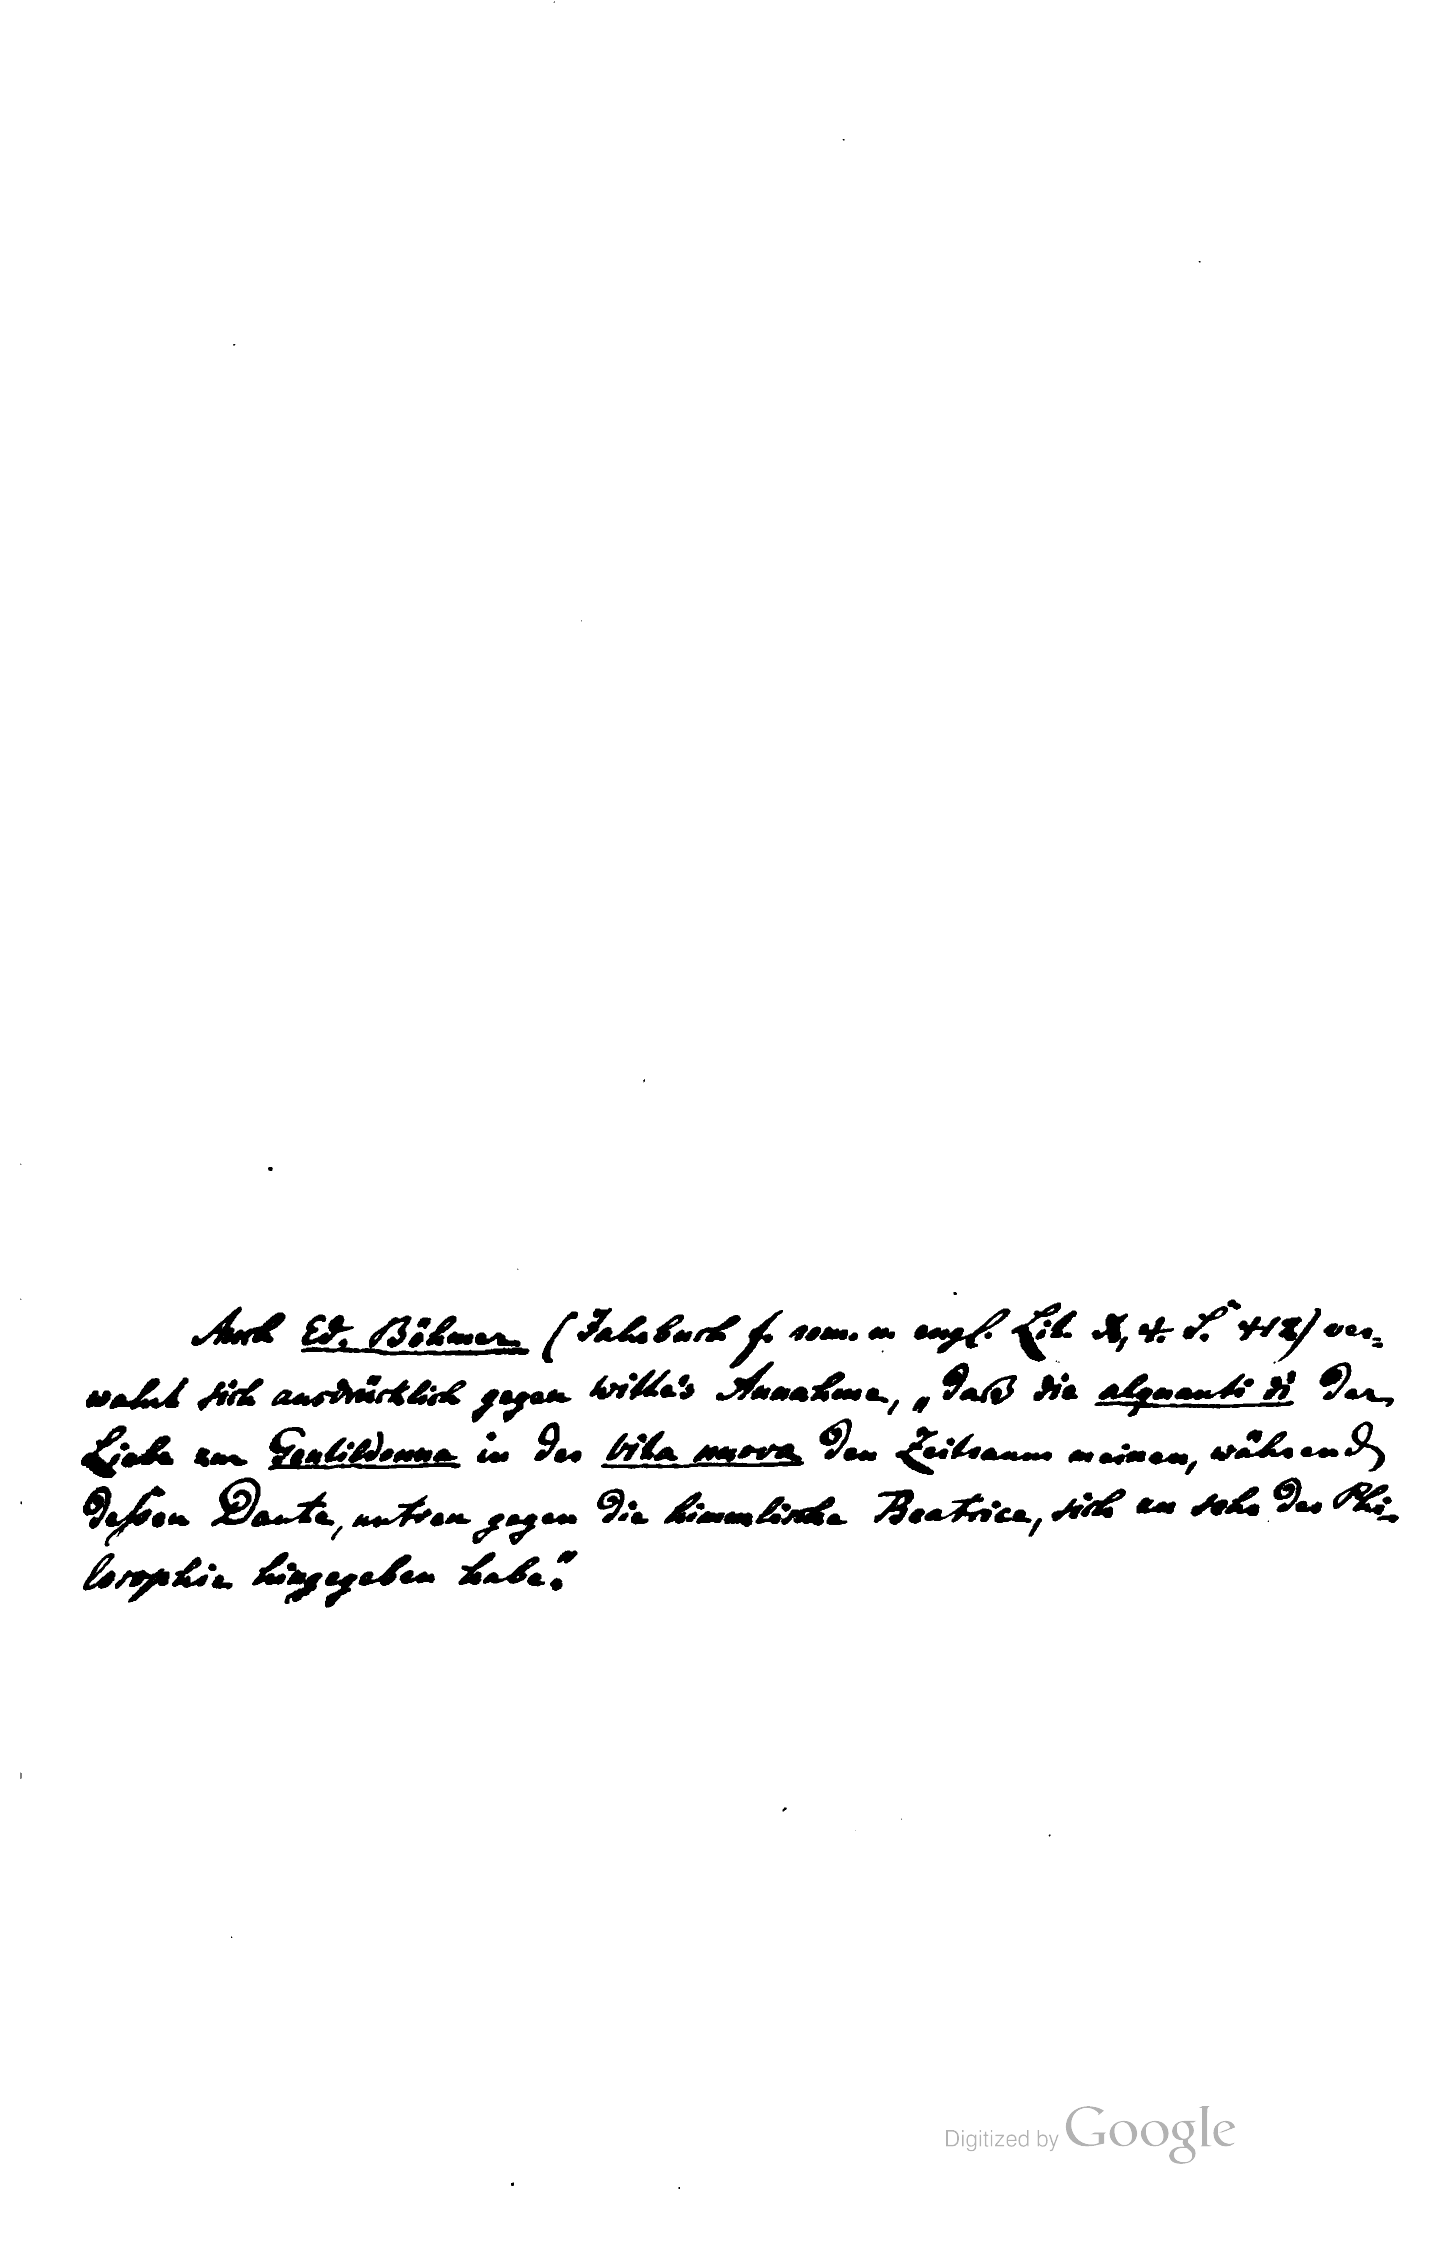 Auch Ed. Böhmer (Jahrbuch f. rom. u. engl. Lit. X, 4. S. ver-
wahrt sich ausdrücklich gegen Witte's Annahme, „daß die alquanti dì der
Liebe zur Gentildonna in der vita nuova den Zeitraum meinen, während
dessen Dante, untreu gegen die himmlische Beatrice, sich zu sehr der Phi-
losophie hingegeben habe."
Digitized by Google